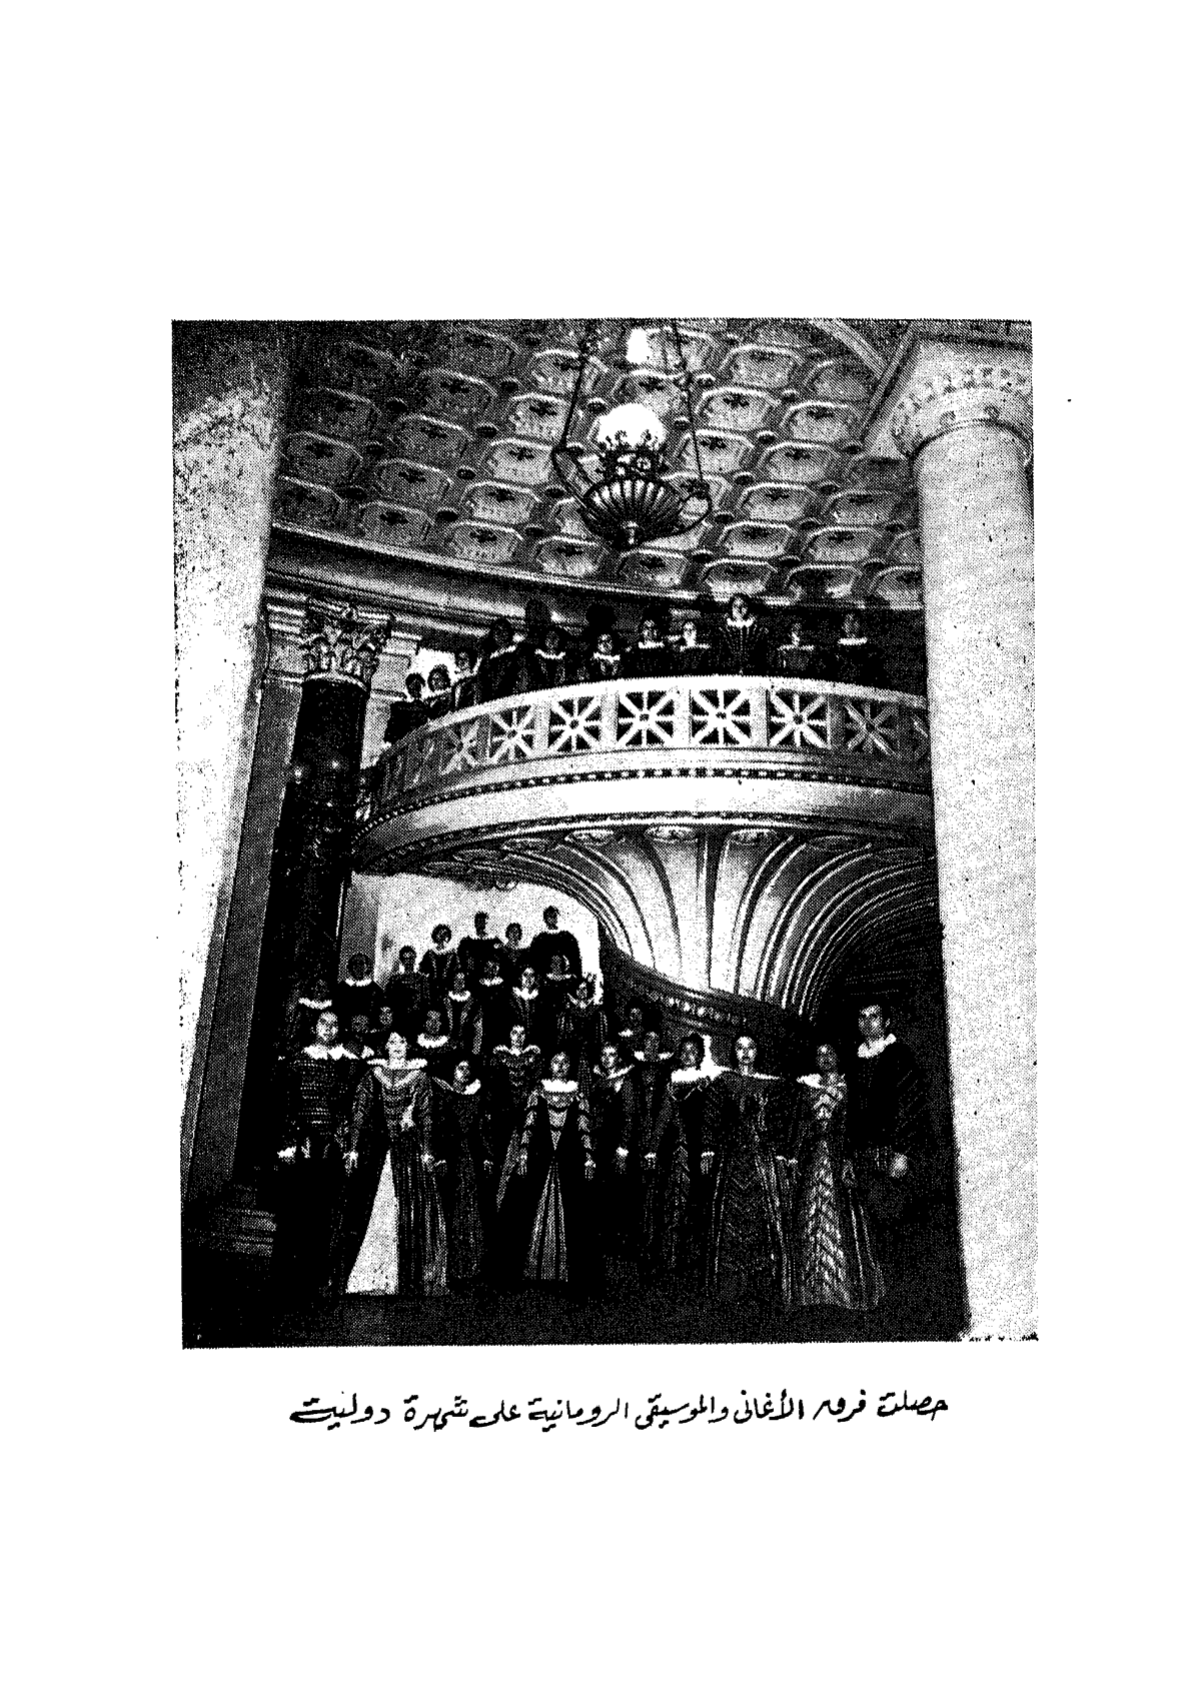 حصلت فرق الأغاني والموسيقى الرومانية على شهرة دولية